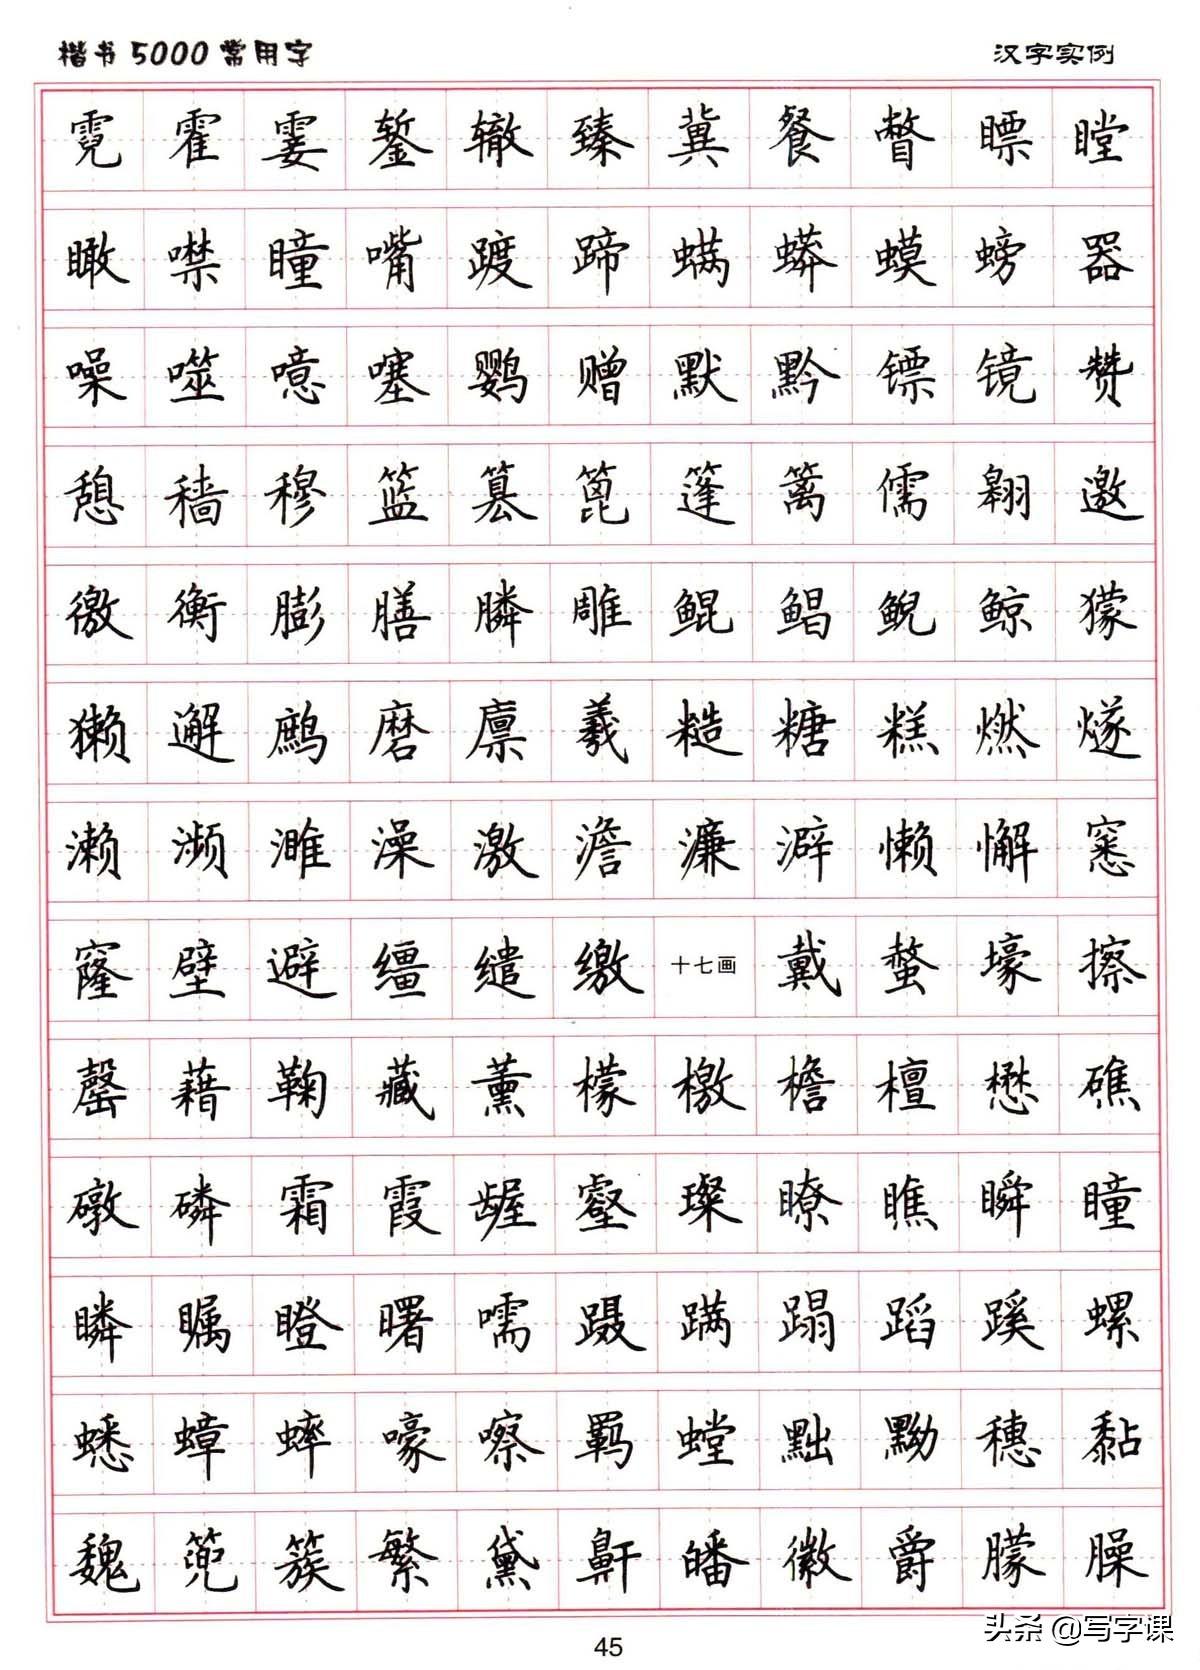 楷书5000常用字 汉字实例
霓 霍 霎 錾 辙 臻 冀 餐 瞥 瞟 瞠
瞰 噤 瞳 嘴 踱 蹄 螨 蟒 蟆 螃 器
噪 噬 噫 噻 鹦 赠 默 黔 镖 镜 赞
憩 穑 穆 篮 篡 篦 篷 篱 儒 翱 邀
徼 衡 膨 膳 膦 雕 鲲 鲳 鲵 鲸 獴
獭 邂 鹧 磨 廪 羲 糙 糖 糕 燃 燧
濑 濒 濉 澡 激 澹 濂 澼 懒 懈 窸
窿 壁 避 缰 缱 缴 十七画 戴 螯 壕 擦
罄 藉 鞠 藏 薰 檬 檄 檐 檀 懋 礁
礅 磷 霜 霞 龌 壑 璨 瞭 瞧 瞬 瞳
瞵 瞩 瞪 曙 嚅 蹑 蹒 蹋 蹈 蹊 螺
蟋 蟑 蟀 嚎 嚓 羁 螳 黜 黝 穗 黏
魏 篼 簇 繁 黛 鼾 皤 徽 爵 朦 臊
45
头条@写字课